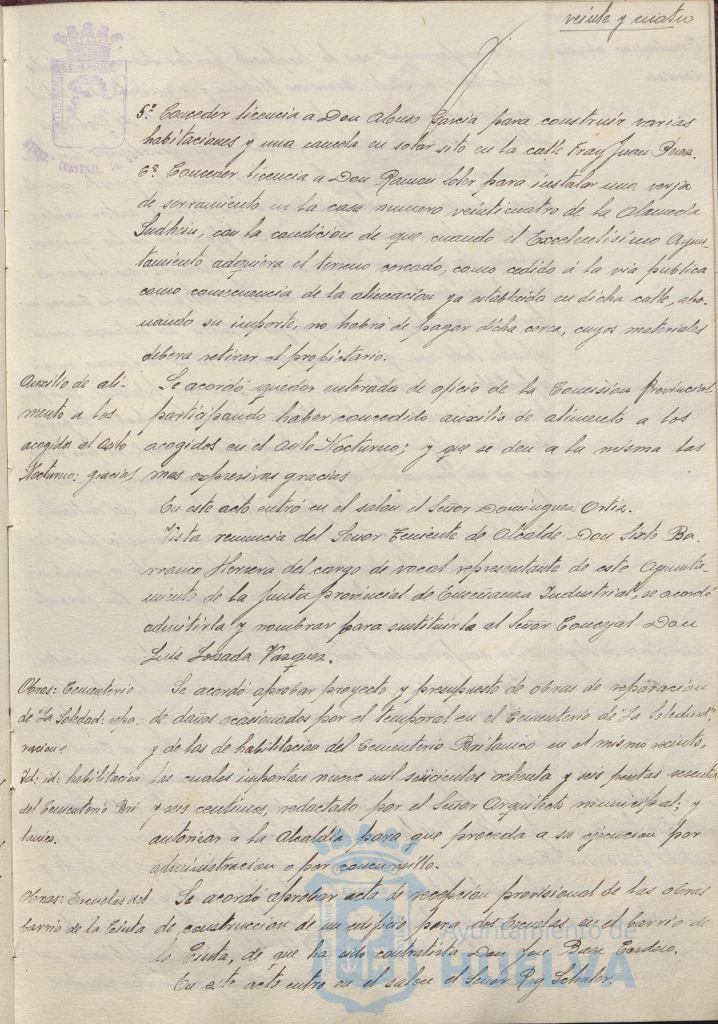 veinte y cuatro
5º Conceder licencia a Don Alonso Garcia para construir varias
habitaciones y una cancela en solar sito en la calle Fray Juan Perez.
6º Conceder licencia a Don Ramon Soler para instalar una verja
de serramiento en la casa numero veinticuatro de la Alameda
Sundhein, con la condicion de que cuando el Excelentisimo Ayun-
tamiento adquiera el terreno cercado, como cedido á la via publica
como consecuencia de la alineacion ya establecida en dicha calle, abo-
nando su importe, no habrá de pagar dicha cerca, cuyos materiales
debera retirar el propietario.
Auxilio de ali-
mento a los
acogidos al Asilo
Nocturno: gracias
Se acordó quedar enterada de oficio de la Comision Provincial
participando haber concedido auxilio de alimento a los
acogidos en el Asilo Nocturno; y que se den a la misma las
mas expresivas gracias
En este acto entró en el salon el Señor Dominguez Ortiz.
Vista renuncia del Señor Teniente de Alcalde Don Sixto Ba-
rranco Herrera del cargo de vocal representante de este Ayunta-
miento de la Junta provincial de Enseñanza Industrial, se acordó
admitirla y nombrar para sustituirla al Señor Concejal Don
Luis Losada Vazquez.
Obras: Cementerio
de "La Soledad: repa-
racion:
Id: id: habilitacion
del Cementerio Bri-
tanico.
Se acordó aprobar proyecto y presupuesto de obras de reparacion
de daños ocasionados por el temporal en el Cementerio de "La Soledad",
y de los de habilitacion del Cementerio Britanico en el mismo recinto,
las cuales importan nueve mil seiscientas ochenta y seis pesetas sesenta
y seis centimos, redactado por el Señor Arquitecto municipal; y
autorizar a la Alcaldía para que proceda a su ejecucion por
administracion o por concursillo.
Obras: Escuelas del
barrio de la Cinta
Se acordó aprobar acta de recepcion provisional de las obras
de construccion de un edificio para dos Escuelas en el barrio de
la Cinta, de que ha sido contratista Don José Baez Cordero.
En este acto entro en el salon el Señor Rey Schuler.
Ayuntamiento de
HUELVA